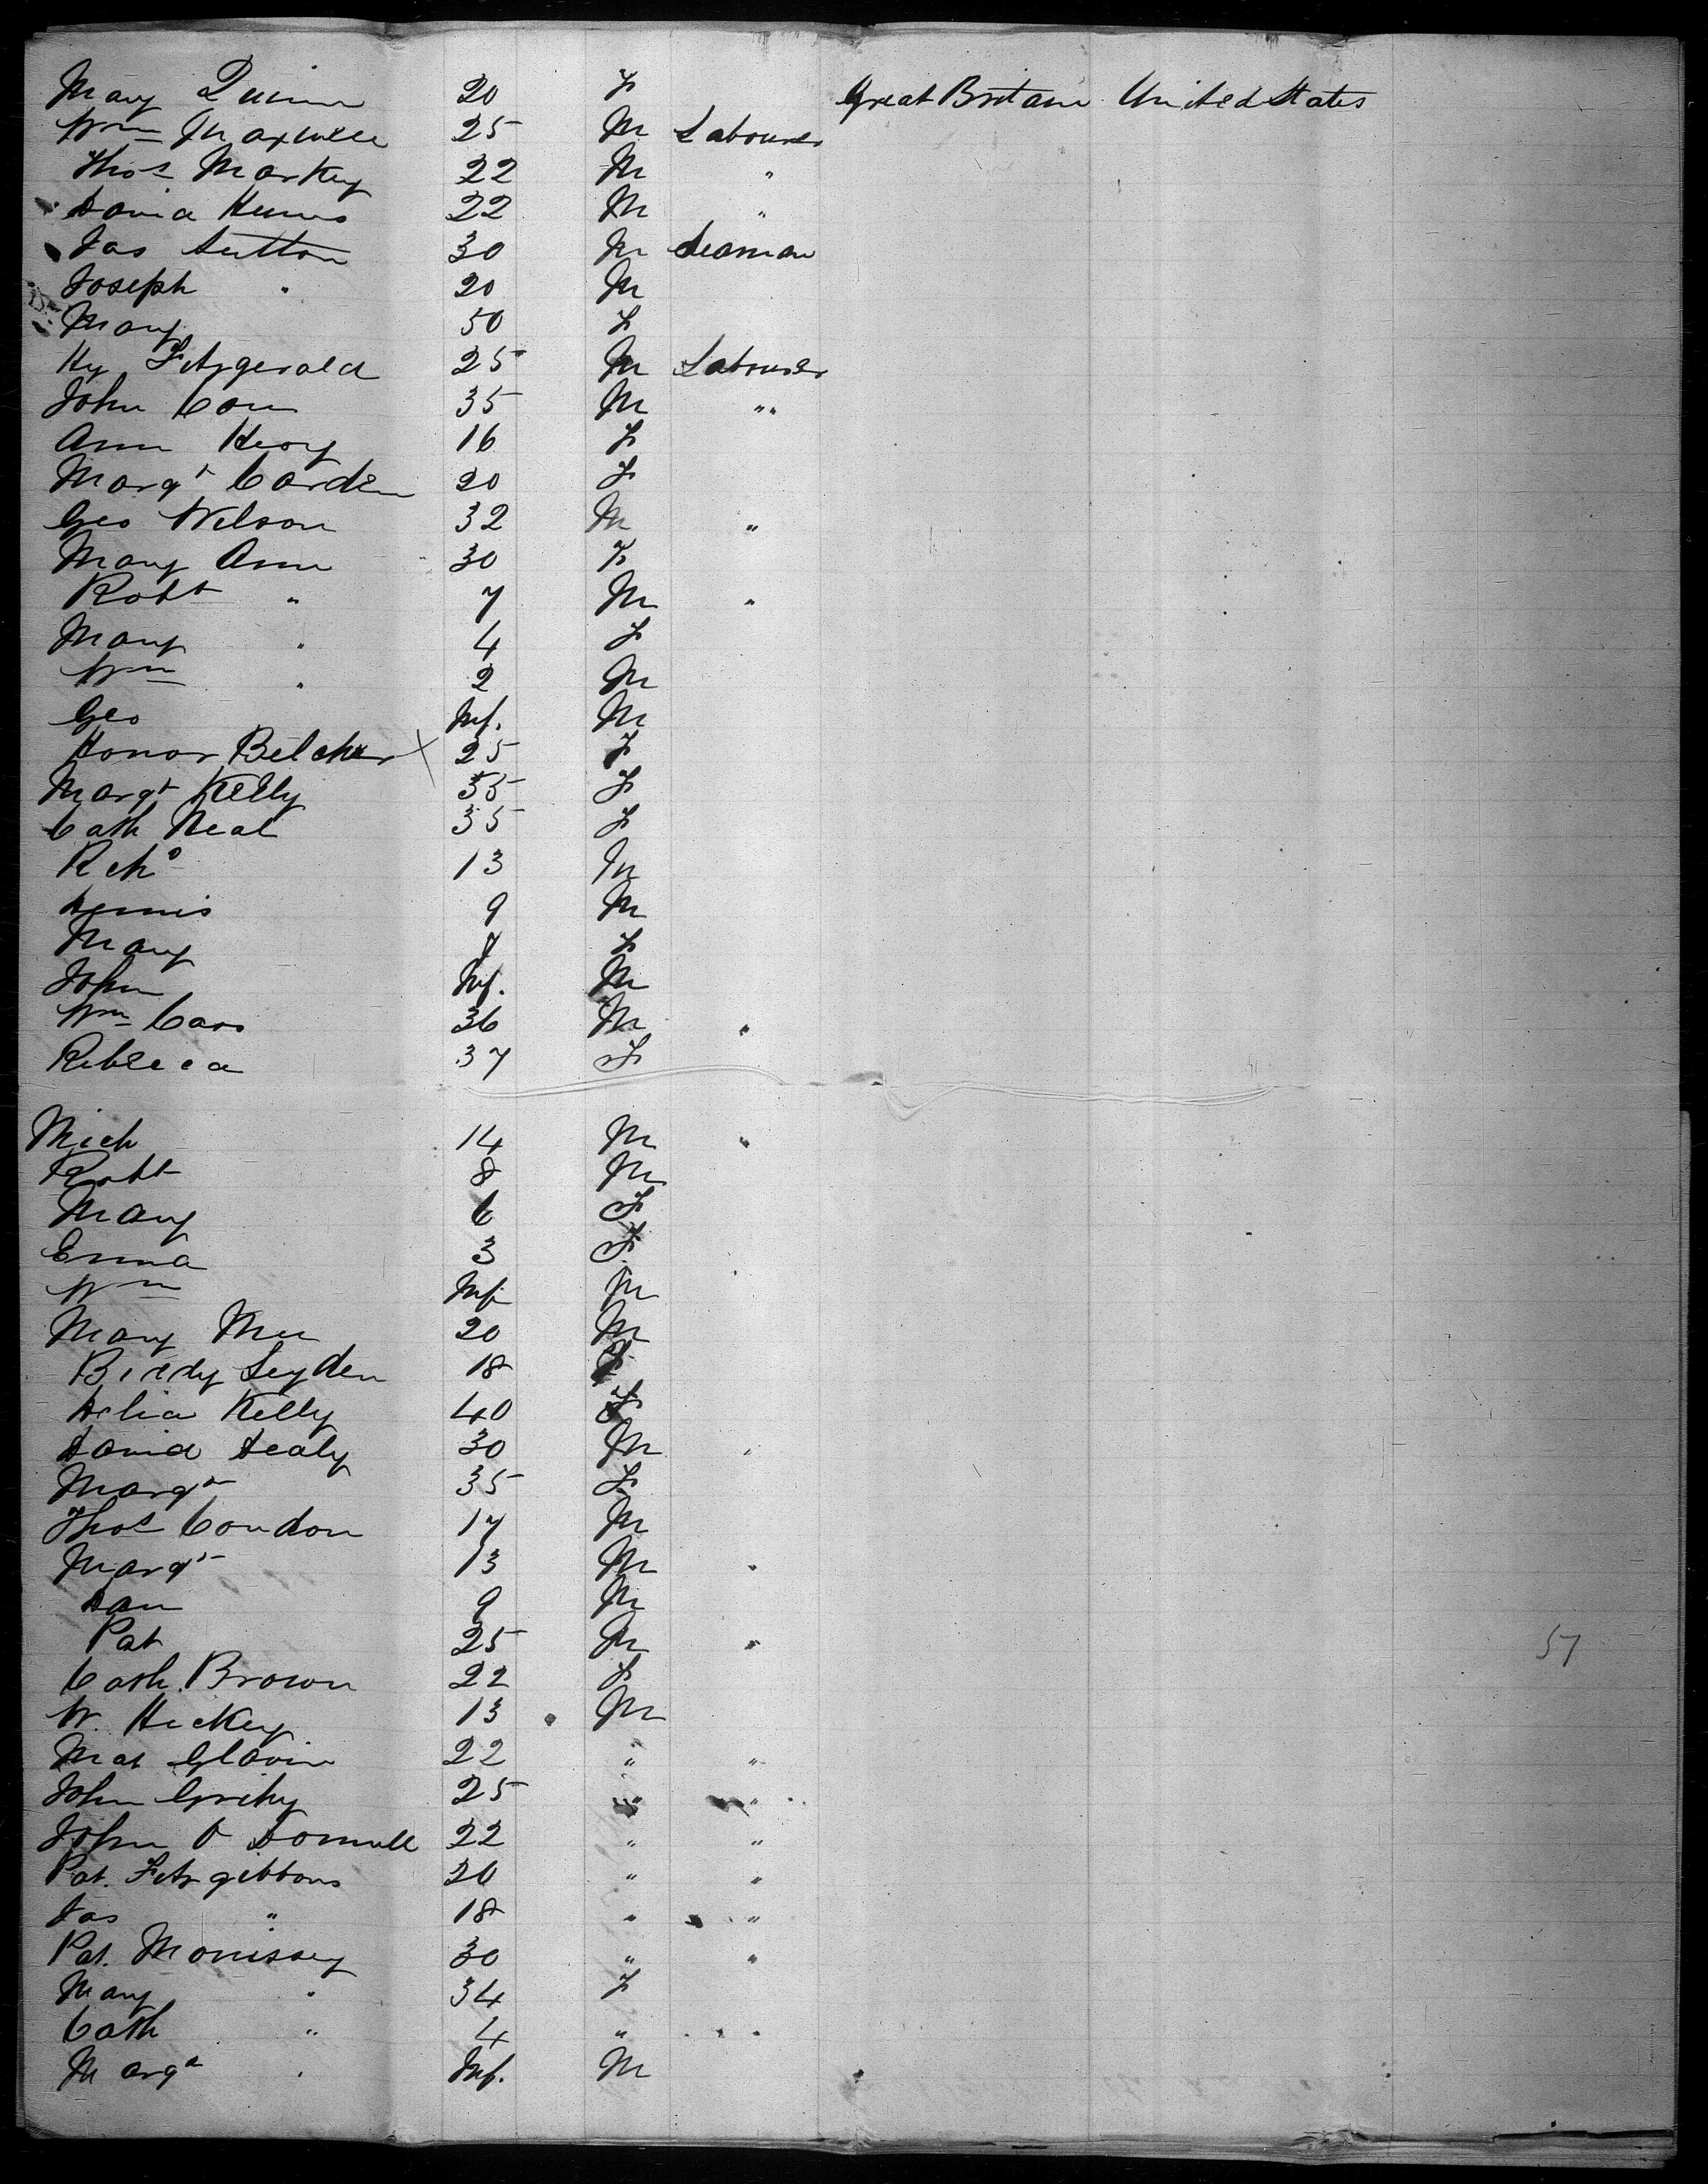 Mary Quinn 20 F Great Britain United States
Wm Maxwell 25 M Labourer
Thos Markey 22 M "
David 22 M "
Jas Sutton 30 M Seaman
Joseph " 20 M
Mary 50 F
Hy Fitzgerald 25 M Labourer
John 35 M "
Ann Keog 16 F
Margt Carden 20 F
Geo Wilson 32 M "
Mary Ann 30 F
Robt " 7 M "
Mary " 4 F
Wm " 2 M
Geo Inf. M
Honor Belcher X 25 F
Margt Kelly 35 F
Cath Neal 35 F
Richd 13 M
Dennis 9 M
Mary 7 F
John Inf. M
Wm Cass 36 M "
Rebecca 37 F
Mich 14 M "
Robt 8 M
Mary 6 F
Emma 3 F
Wm Inf M
Mary 20 M
Biddy Leyden 18 F
Delia Kelly 40 F
David Sealy 30 M "
Margt 35 F
Thos Condon 17 M
Margt 13 M "
Dan 9 M
Pat 25 M " 57
Cath. Brown 22 F
W. Hickey 13 M
Mat Glavin 22 " "
John 25 " "
John O Donnell 22 " "
Pat. Fitzgibbons 20 " "
Jas " 18 " "
Pat. Morrissey 30 " "
Mary " 34 F
Cath " 4 " "
Margt " Inf. M